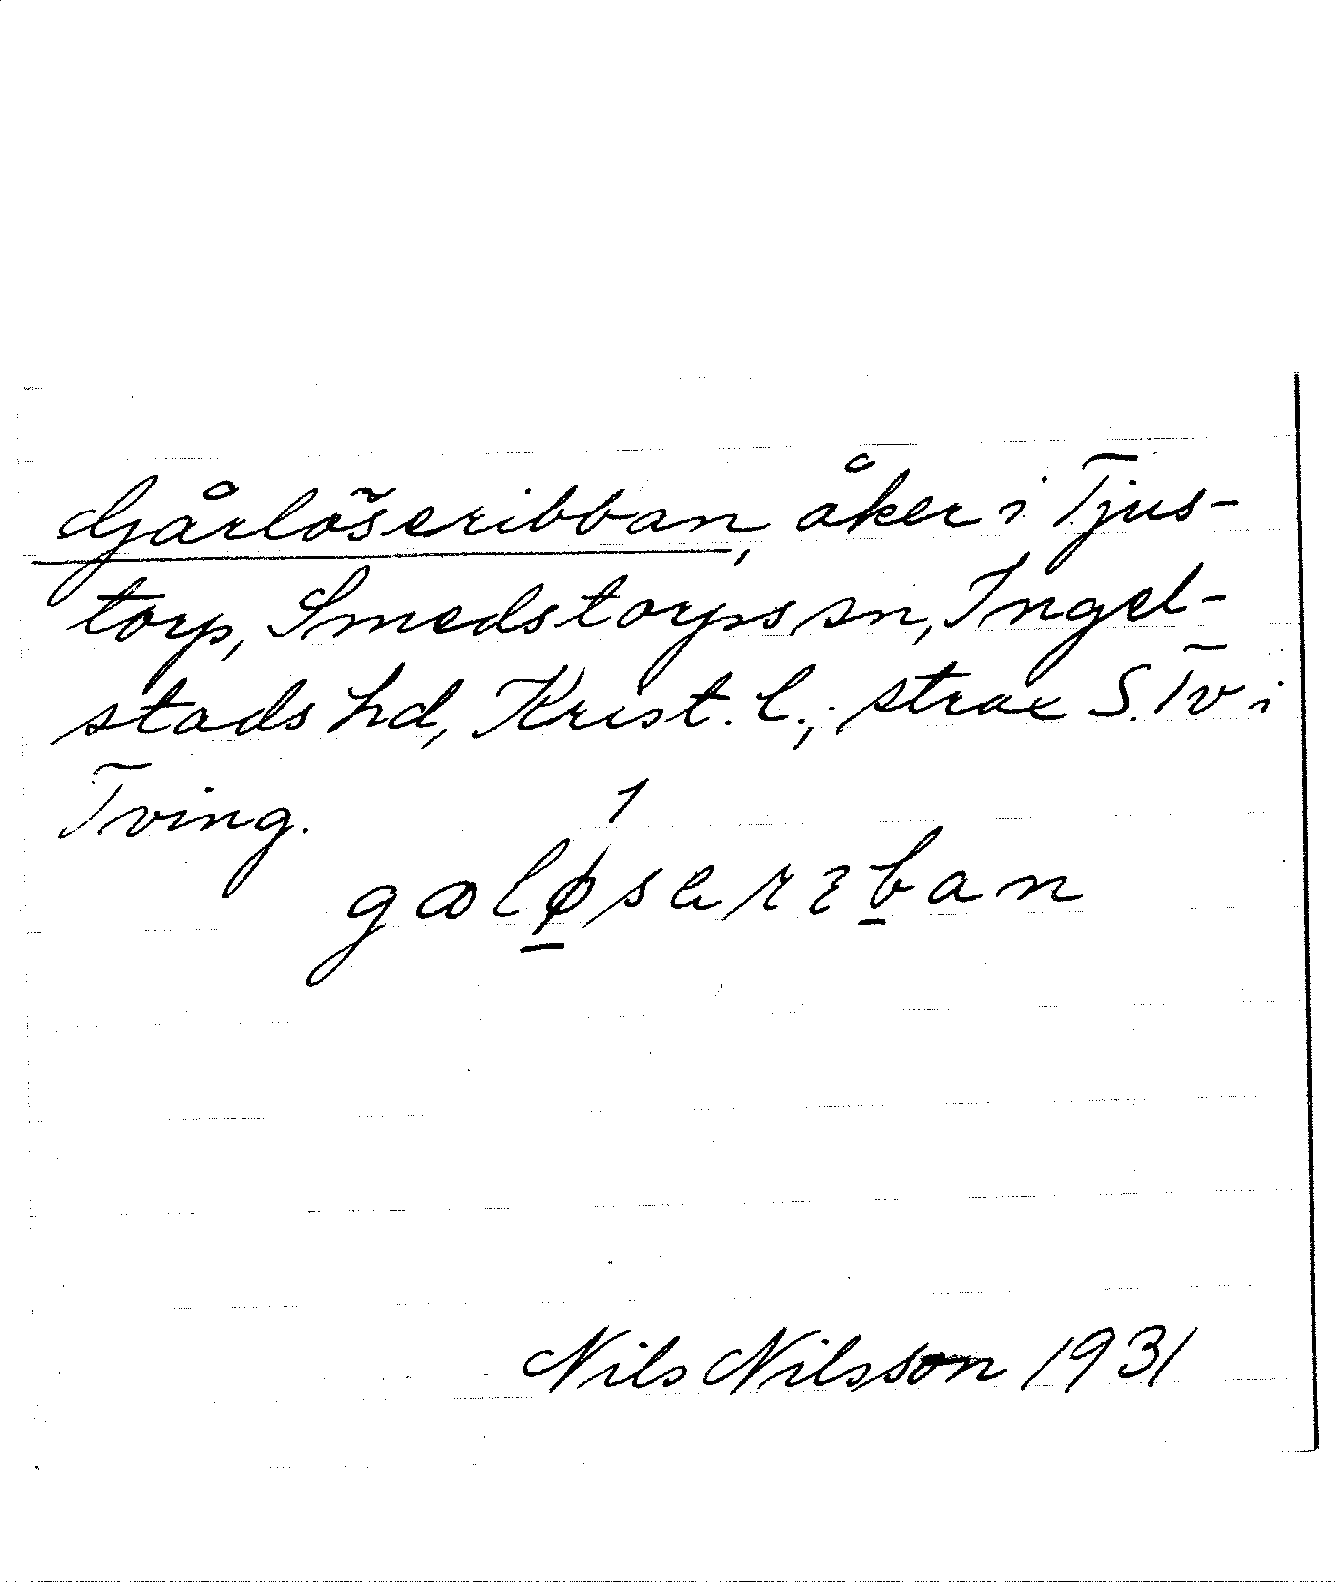 Gårlöseribban, åker i Tjus-
torp, Smedstorps sn, Ingel-
stads hd, Krist. l.; strax S. Tv i
Tving.
1
gɷlø̱serɪḇan
Nils Nilsson 1931